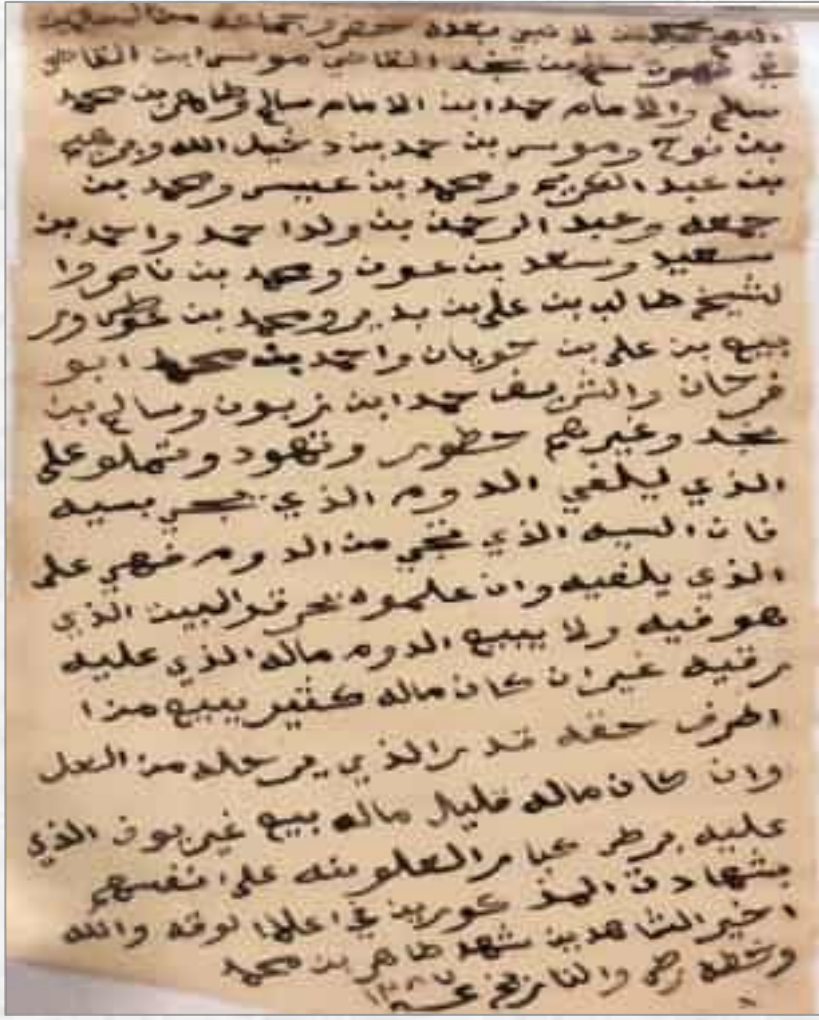 لا نبي بعده حضرو جماعة من
في شهود سليم بن القاضي موسى ابن القاضي
سالم والامام حمد ابن الامام سالم وطاهر بن محمد
بن نوح وموسى بن حمد بن دخيل الله وبرهيم
بن عبد الكريم ومحمد بن عيسى ومحمد بن
جمعه وعبد الرحمن بن ولدا حمد واحمد بن
سعيد وسعد بن عون ومحمد بن ناصر وا
لشيخ طالب بن علي بن بدير ومحمد بن ور
بيع بن علي بن حوبان واحمد بن محمد ابو
فرحان والشريف حمد ابن زبون وسالم بن
وغيرهم حظور وشهود وشملو على
الذي ليلفي الدوم الذي يجي بسيه
فان السيه الذي تجي من الدوم فهي على
الذي يلفيه وان علموه يحرقو البيت الذي
هو فيه ولا يبيع الدوم ماله الذي عليه
رقبه غير ان كان ماله كثير يبيع من ا
طرف حقه قدر الذي
وان كان ماله قليل ماله بيع غير الذي
عليه على نفسهم
بشهادت المذكورين في اعلا الورقه والله
اخير الشاهدين شهد طاهر بن محمد
وخطه والتاريخ